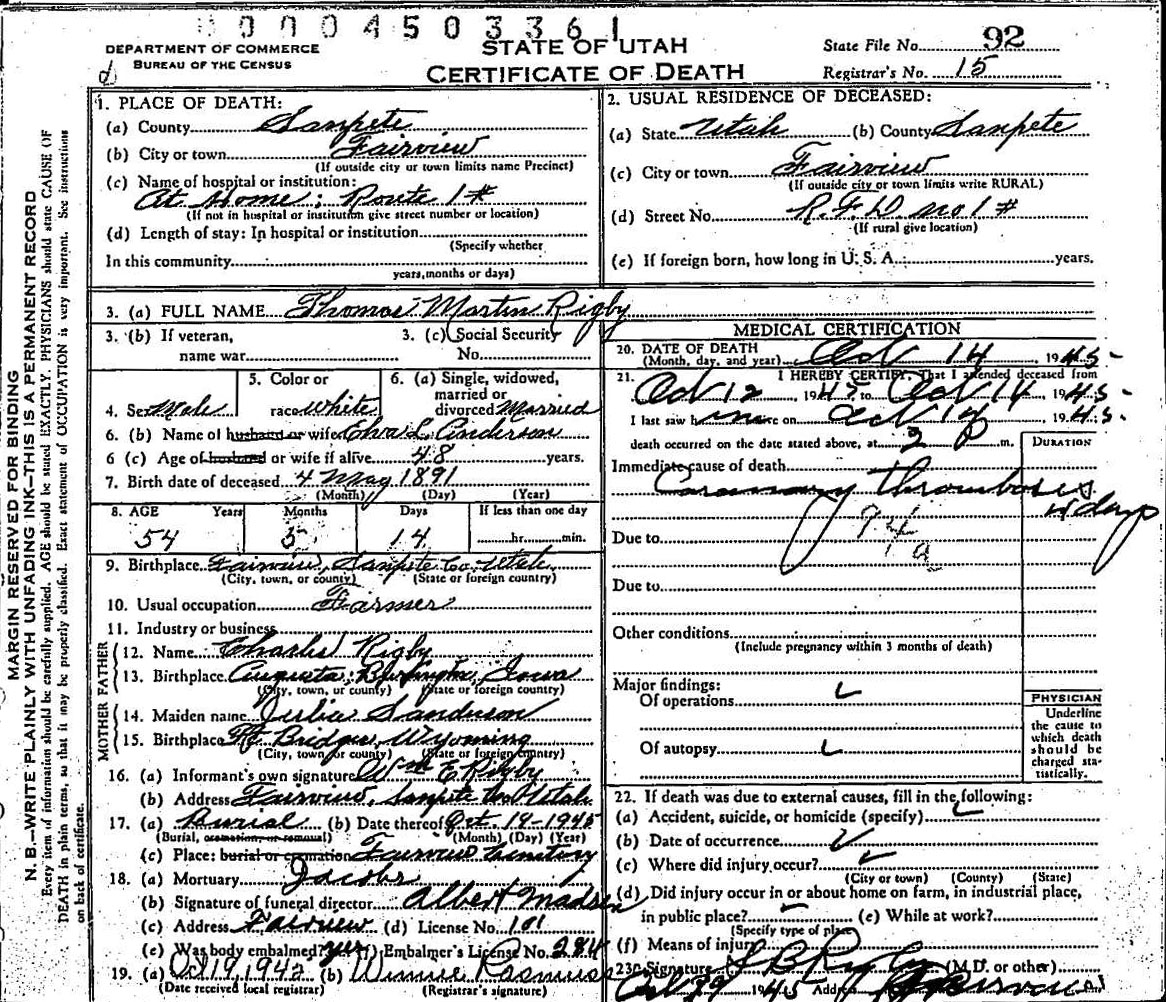 0000450336 1
DEPARTMENT OF COMMERCE
BUREAU OF THE CENSUS
d
STATE OF UTAH
CERTIFICATE OF DEATH
State File No. 92
Registrar's No. 15
MARGIN RESERVED FOR BINDING
N. B.—WRITE PLAINLY WITH UNFADING INK—THIS IS A PERMANENT RECORD
Every item of information should be carefully supplied. AGE should be stated EXACTLY. PHYSICIANS should state CAUSE OF
DEATH in plain terms, so that it may be properly classified. Exact statement of OCCUPATION is very important. See instructions
on back of certificate.
1. PLACE OF DEATH:
(a) County Sanpete
(b) City or town Fairview
(If outside city or town limits name Precinct)
(c) Name of hospital or institution:
At Home: Route 1#
(If not in hospital or institution give street number or location)
(d) Length of stay: In hospital or institution
(Specify whether
In this community
years, months or days)
2. USUAL RESIDENCE OF DECEASED:
(a) State Utah (b) County Sanpete
(c) City or town Fairview
(If outside city or town limits write RURAL)
(d) Street No. R.F.D. no 1#
(If rural give location)
(e) If foreign born, how long in U. S. A. years.
3. (a) FULL NAME Thomas Martin Rigby
3. (b) If veteran,
name war
3. (c) Social Security
No.
4. Sex Male
5. Color or
race White
6. (a) Single, widowed,
married or
divorced Married
6. (b) Name of husband or wife Elva L. Anderson
6 (c) Age of husband or wife if alive 48 years.
7. Birth date of deceased 4 May 1891
(Month) (Day) (Year)
8. AGE Years Months Days If less than one day
54 5 14 hr. min.
9. Birthplace Fairview, Sanpete Co. Utah
(City, town, or county) (State or foreign country)
10. Usual occupation Farmer
11. Industry or business
FATHER
12. Name Charles Rigby
13. Birthplace Augusta: Burlington Iowa
(City, town, or county) (State or foreign country)
MOTHER
14. Maiden name Julia Sanderson
15. Birthplace Ft. Bridger, Wyoming
(City, town or county) (State or foreign country)
16. (a) Informant's own signature Wm E Rigby
(b) Address Fairview, Sanpete Utah
17. (a) Burial (b) Date thereof Oct. 19-1945
(Burial, cremation, or removal) (Month) (Day) (Year)
(c) Place: burial or cremation Fairview Cemetery
18. (a) Mortuary Jacobs
(b) Signature of funeral director Albert Madsen
(c) Address Fairview (d) License No. 101
(e) Was body embalmed? yes (f) Embalmer's License No. 284
19. (a) Oct 19, 1942 (b) Winnie Rasmuss
(Date received local registrar) (Registrar's signature)
MEDICAL CERTIFICATION
20. DATE OF DEATH
(Month, day, and year) Oct 14, 1945
21. I HEREBY CERTIFY, That I attended deceased from
Oct 12, 1945 to Oct 14 1945
I last saw him alive on Oct 14 1945
death occurred on the date stated above, at 2 P m.
DURATION
Immediate cause of death
Coronary thromboses
days
94a
Due to
Due to
Other conditions
(Include pregnancy within 3 months of death)
Major findings:
Of operations
Of autopsy
PHYSICIAN
Underline
the cause to
which death
should be
charged sta-
tistically.
22. If death was due to external causes, fill in the following:
(a) Accident, suicide, or homicide (specify)
(b) Date of occurrence
(c) Where did injury occur?
(City or town) (County) (State)
(d) Did injury occur in or about home on farm, in industrial place,
in public place? (e) While at work?
(Specify type of place)
(f) Means of injury
23. Signature S B Rigby (M.D. or other)
1945 Address Fairview